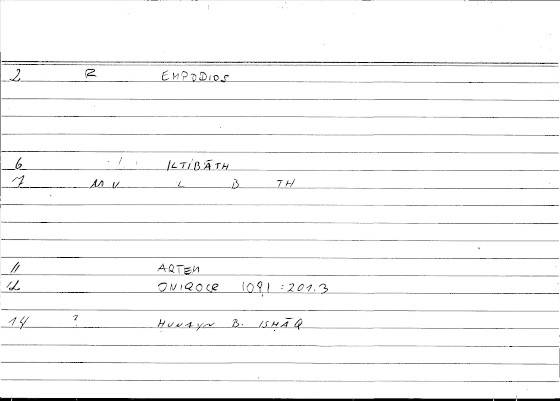 2 R EMPODIOS
6 ILTIBĀTH
7 M V L B TH
11 ARTEM
12 ONIROCR 1091 :201.3
14 ? HUNAYN B. ISHĀQ